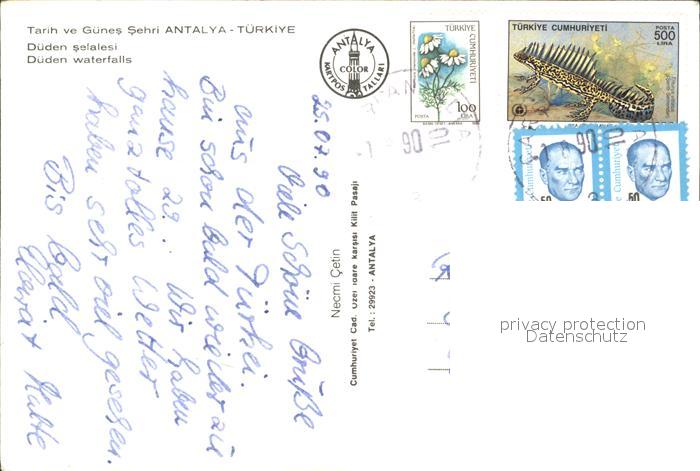 Tarih ve Güneş Şehri ANTALYA - TÜRKİYE
Düden şelalesi
Düden waterfalls
ANTALYA
COLOR
KARTPOSTALLARI
TÜRKİYE CUMHURİYETİ
POSTA
100
LİRA
TÜRKİYE CUMHURİYETİ
POSTA
500
LİRA
50
50
90
90
25.07.90
Viele Schöne Grüße
aus der Türkei.
Bin schon bald wieder zu
hause 29. Wir haben
ganz tolles Wetter
haben sehr viel gesehen.
Bis bald
Necmi Çetin
Cumhuriyet Cad. Özel İdare karşısı Kilit Pasajı
Tel. : 29923 - ANTALYA
privacy protection
Datenschutz